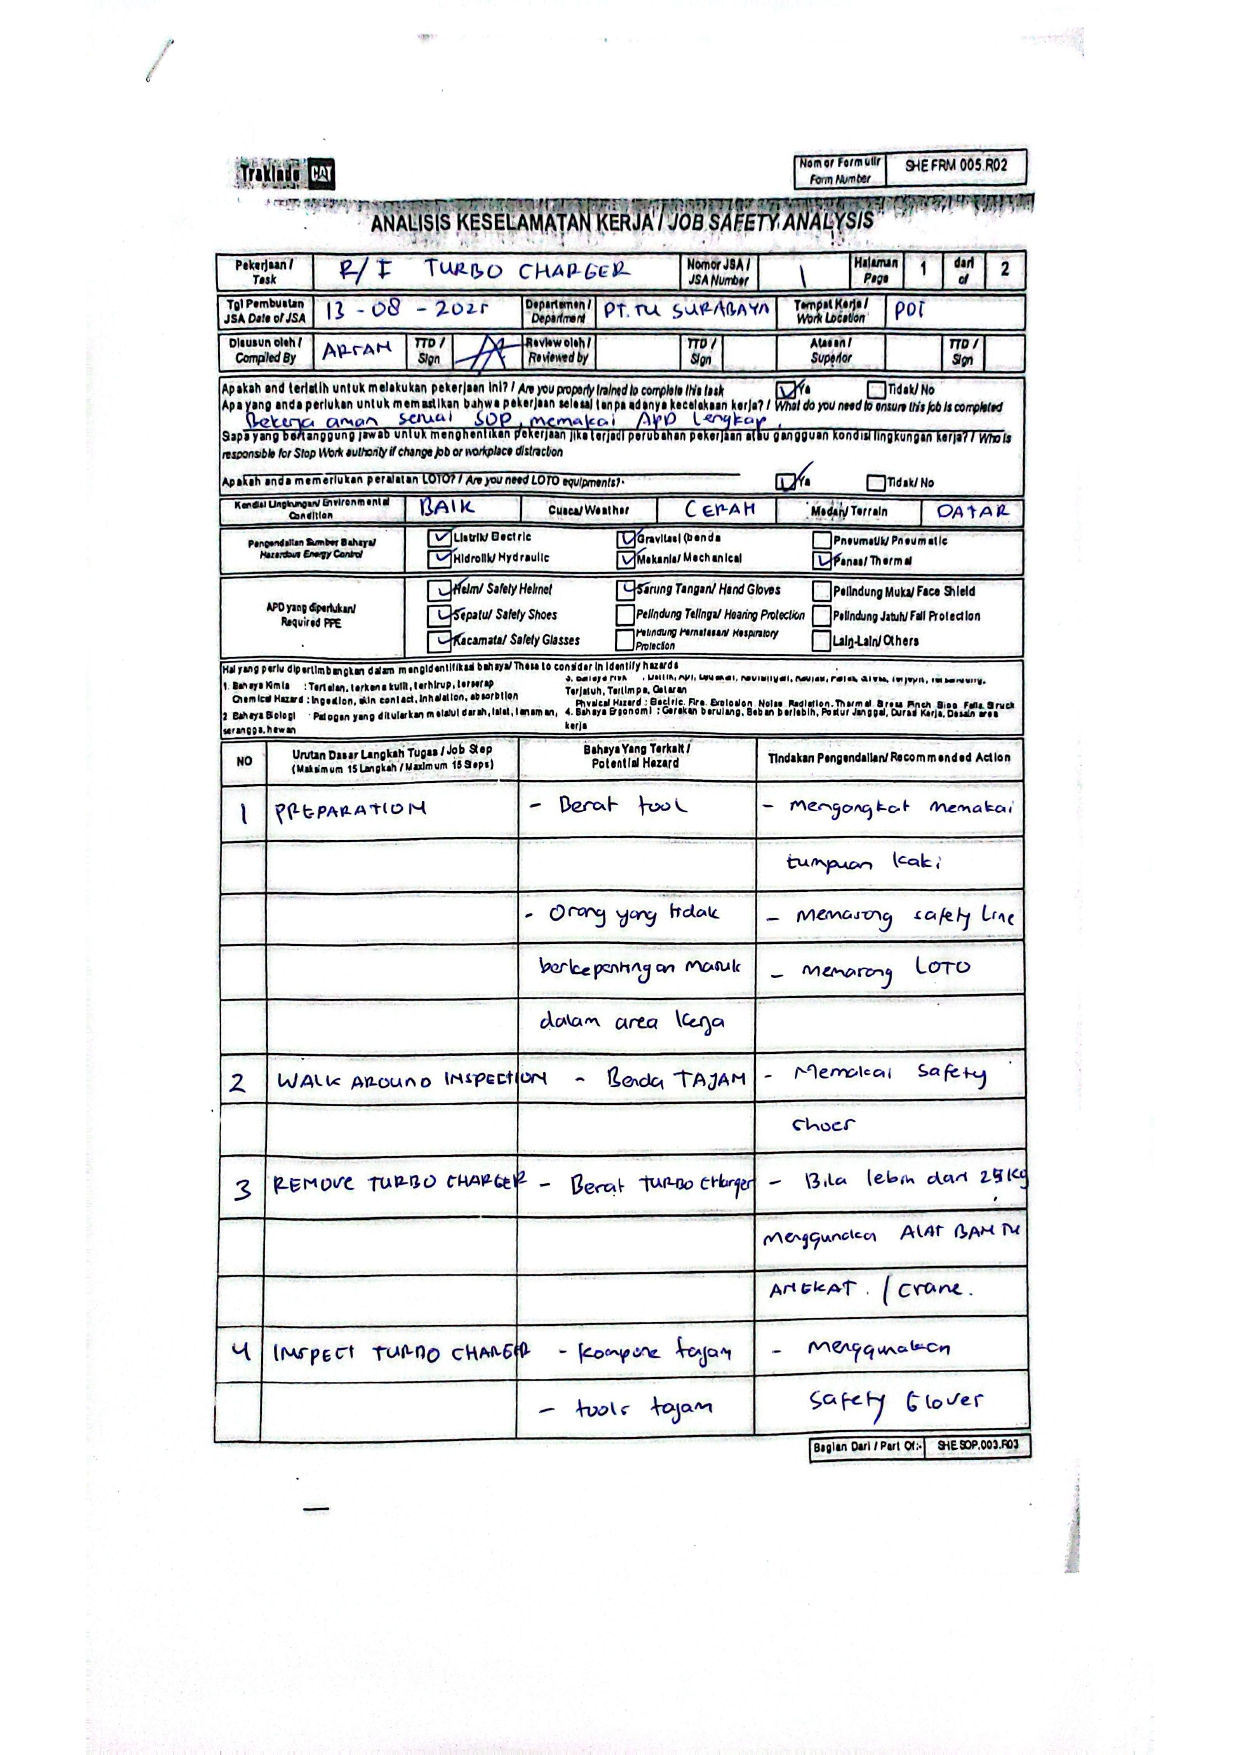 Trakindo CAT
Nomor Formulir
Form Number
SHE FRM 005.R02
ANALISIS KESELAMATAN KERJA / JOB SAFETY ANALYSIS
Pekerjaan /
Task
R/I TURBO CHARGER
Nomor JSA /
JSA Number
1
Halaman
Page
1
dari
of
2
Tgl Pembuatan
JSA Date of JSA
13 - 08 - 2025
Departemen /
Department
PT. TU SURABAYA
Tempat Kerja /
Work Location
Disusun oleh /
Compiled By
TTD /
Sign
Review oleh /
Reviewed by
TTD /
Sign
Atasan /
Superior
TTD /
Sign
Apakah and terlatih untuk melakukan pekerjaan ini? / Are you properly trained to complete this task
Ya
Tidak/ No
Apa yang anda perlukan untuk memastikan bahwa pekerjaan selesai tanpa adanya kecelakaan kerja? / What do you need to ensure this job is completed
Bekerja aman sesuai SOP, memakai APD lengkap.
Siapa yang bertanggung jawab untuk menghentikan pekerjaan jika terjadi perubahan pekerjaan atau gangguan kondisi lingkungan kerja? / Who is
responsible for Stop Work authority if change job or workplace distraction
Apakah anda memerlukan peralatan LOTO? / Are you need LOTO equipments?
Ya
Tidak/ No
Kondisi Lingkungan/ Environmental
Condition
BAIK
Cuaca/ Weather
CERAH
Medan/ Terrain
DATAR
Pengendalian Sumber Bahaya/
Hazardous Energy Control
Listrik/ Electric
Gravitasi (benda
Pneumatik/ Pneumatic
Hidrolik/ Hydraulic
Mekanis/ Mechanical
Panas/ Thermal
APD yang diperlukan/
Required PPE
Helm/ Safety Helmet
Sarung Tangan/ Hand Gloves
Pelindung Muka/ Face Shield
Sepatu/ Safety Shoes
Pelindung Telinga/ Hearing Protection
Pelindung Jatuh/ Fall Protection
Kacamata/ Safety Glasses
Pelindung Pernafasan/ Respiratory
Protection
Lain-Lain/ Others
Hal yang perlu dipertimbangkan dalam mengidentifikasi bahaya/ These to consider in identify hazards
1. Bahaya Kimia : Tertelan, terkena kulit, terhirup, terserap
Chemical Hazard : Ingestion, skin contact, Inhalation, absorbtion
2 Bahaya Biologi : Patogen yang ditularkan melalui darah, lalat, tanaman,
serangga, hewan
Terjatuh, Tertimpa, Getaran
Physical Hazard : Electric, Fire, Explosion, Noise, Radiation, Thermal, Stress, Pinch, Slips, Falls, Struck
4. Bahaya Ergonomi : Gerakan berulang, Beban berlebih, Postur Janggal, Durasi Kerja, Desain area
kerja
NO
Urutan Dasar Langkah Tugas / Job Step
(Maksimum 15 Langkah / Maximum 15 Steps)
Bahaya Yang Terkait /
Potential Hazard
Tindakan Pengendalian/ Recommended Action
1 PREPARATION - Berat tool - Mengangkat memakai
tumpuan kaki
- Orang yang tidak - Memasang safety Line
berkepentingan masuk - Memasang LOTO
dalam area kerja
2 WALK AROUND INSPECTION - Benda TAJAM - Memakai Safety
shoes
3 REMOVE TURBO CHARGER - Berat TURBO Charger - Bila lebih dari 25 Kg
Menggunakan ALAT BANTU
ANGKAT. / Crane.
4 INSPECT TURBO CHARGER - Kompone tajam - Menggunakan
- tools tajam Safety Gloves
Bagian Dari / Part Of:-
SHE SOP.003.R03